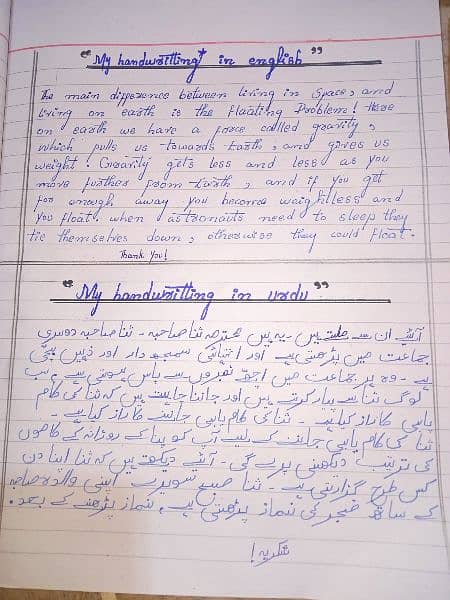 "My handwritting in english"
The main difference between living in Space, and
living on earth is the floating Problem! Here
on earth we have a force called gravity,
which pulls us towards Earth, and gives us
weight. Gravity gets less and less as you
move further from Earth, and if you get
far enough away you becomd weightless and
you float, when astronauts need to sleep they
tie themselves down, otherwise they could float.
Thank you!
"My handwritting in urdu"
آئیے ان سے ملتے ہیں۔ یہ ہیں محترمہ ثنا صاحبہ۔ ثنا صاحبہ دوسری
جماعت میں پڑھتی ہے اور انتہائی سمجھ دار اور ذہین بچی
ہے۔ وہ ہر جماعت میں اچھے نمبروں سے پاس ہوتی ہے۔ سب
لوگ ثنا سے پیار کرتے ہیں اور جاننا چاہتے ہیں کہ ثنا کی کام
یابی کا راز کیا ہے۔ ثنا کی کام یابی جاننے کا راز کیا ہے۔
ثنا کی کام یابی جاننے کے لیے آپ کو ثنا کے روزانہ کے کاموں
کی ترتیب دیکھنی پڑے گی۔ آئیے دیکھتے ہیں کہ ثنا اپنا دن
کس طرح گزارتی ہے۔ ثنا صبح سویرے اپنی والدہ صاحبہ
کے ساتھ فجر کی نماز پڑھتی ہے، نماز پڑھنے کے بعد۔
شکریہ!